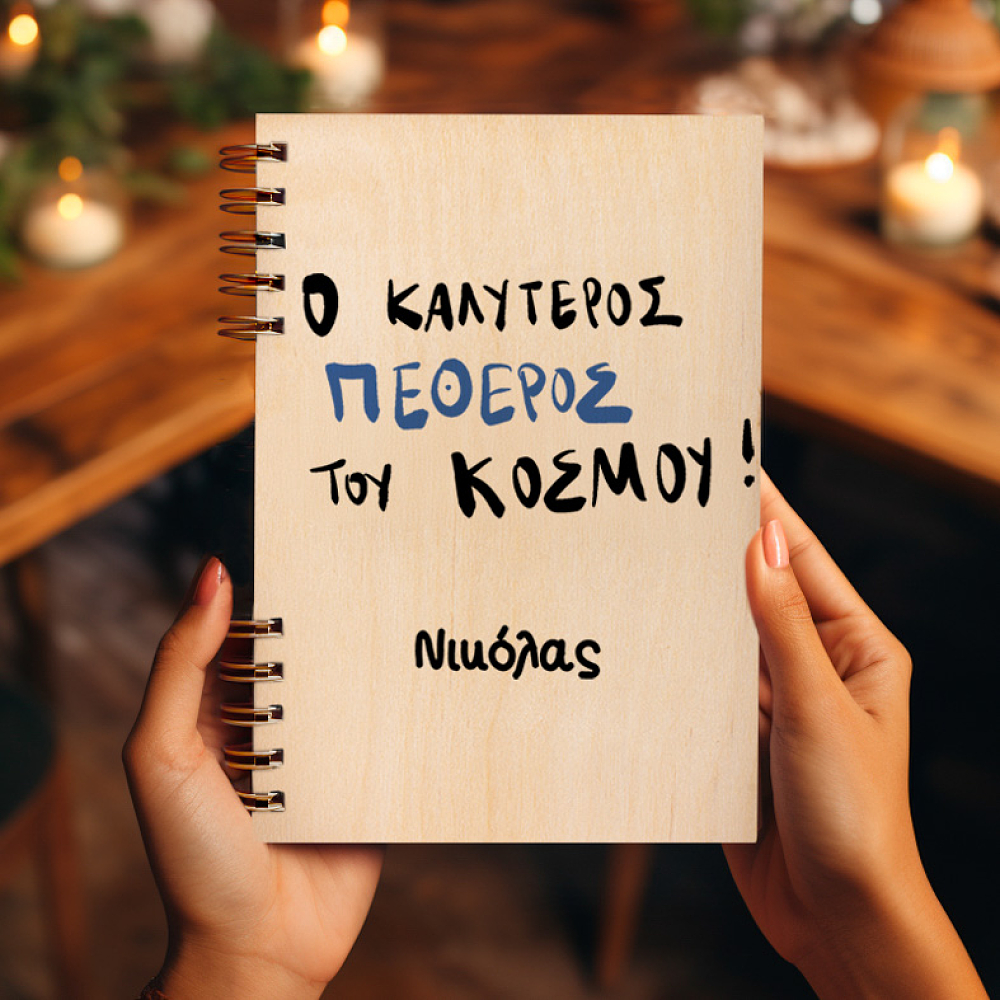 Ο ΚΑΛΥΤΕΡΟΣ
ΠΕΘΕΡΟΣ
ΤΟΥ ΚΟΣΜΟΥ!
Νικόλας